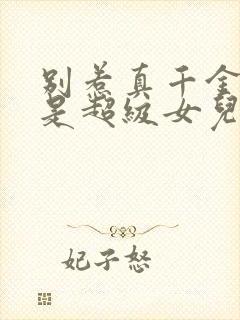 别惹真千金
是超级女儿
妃子怒